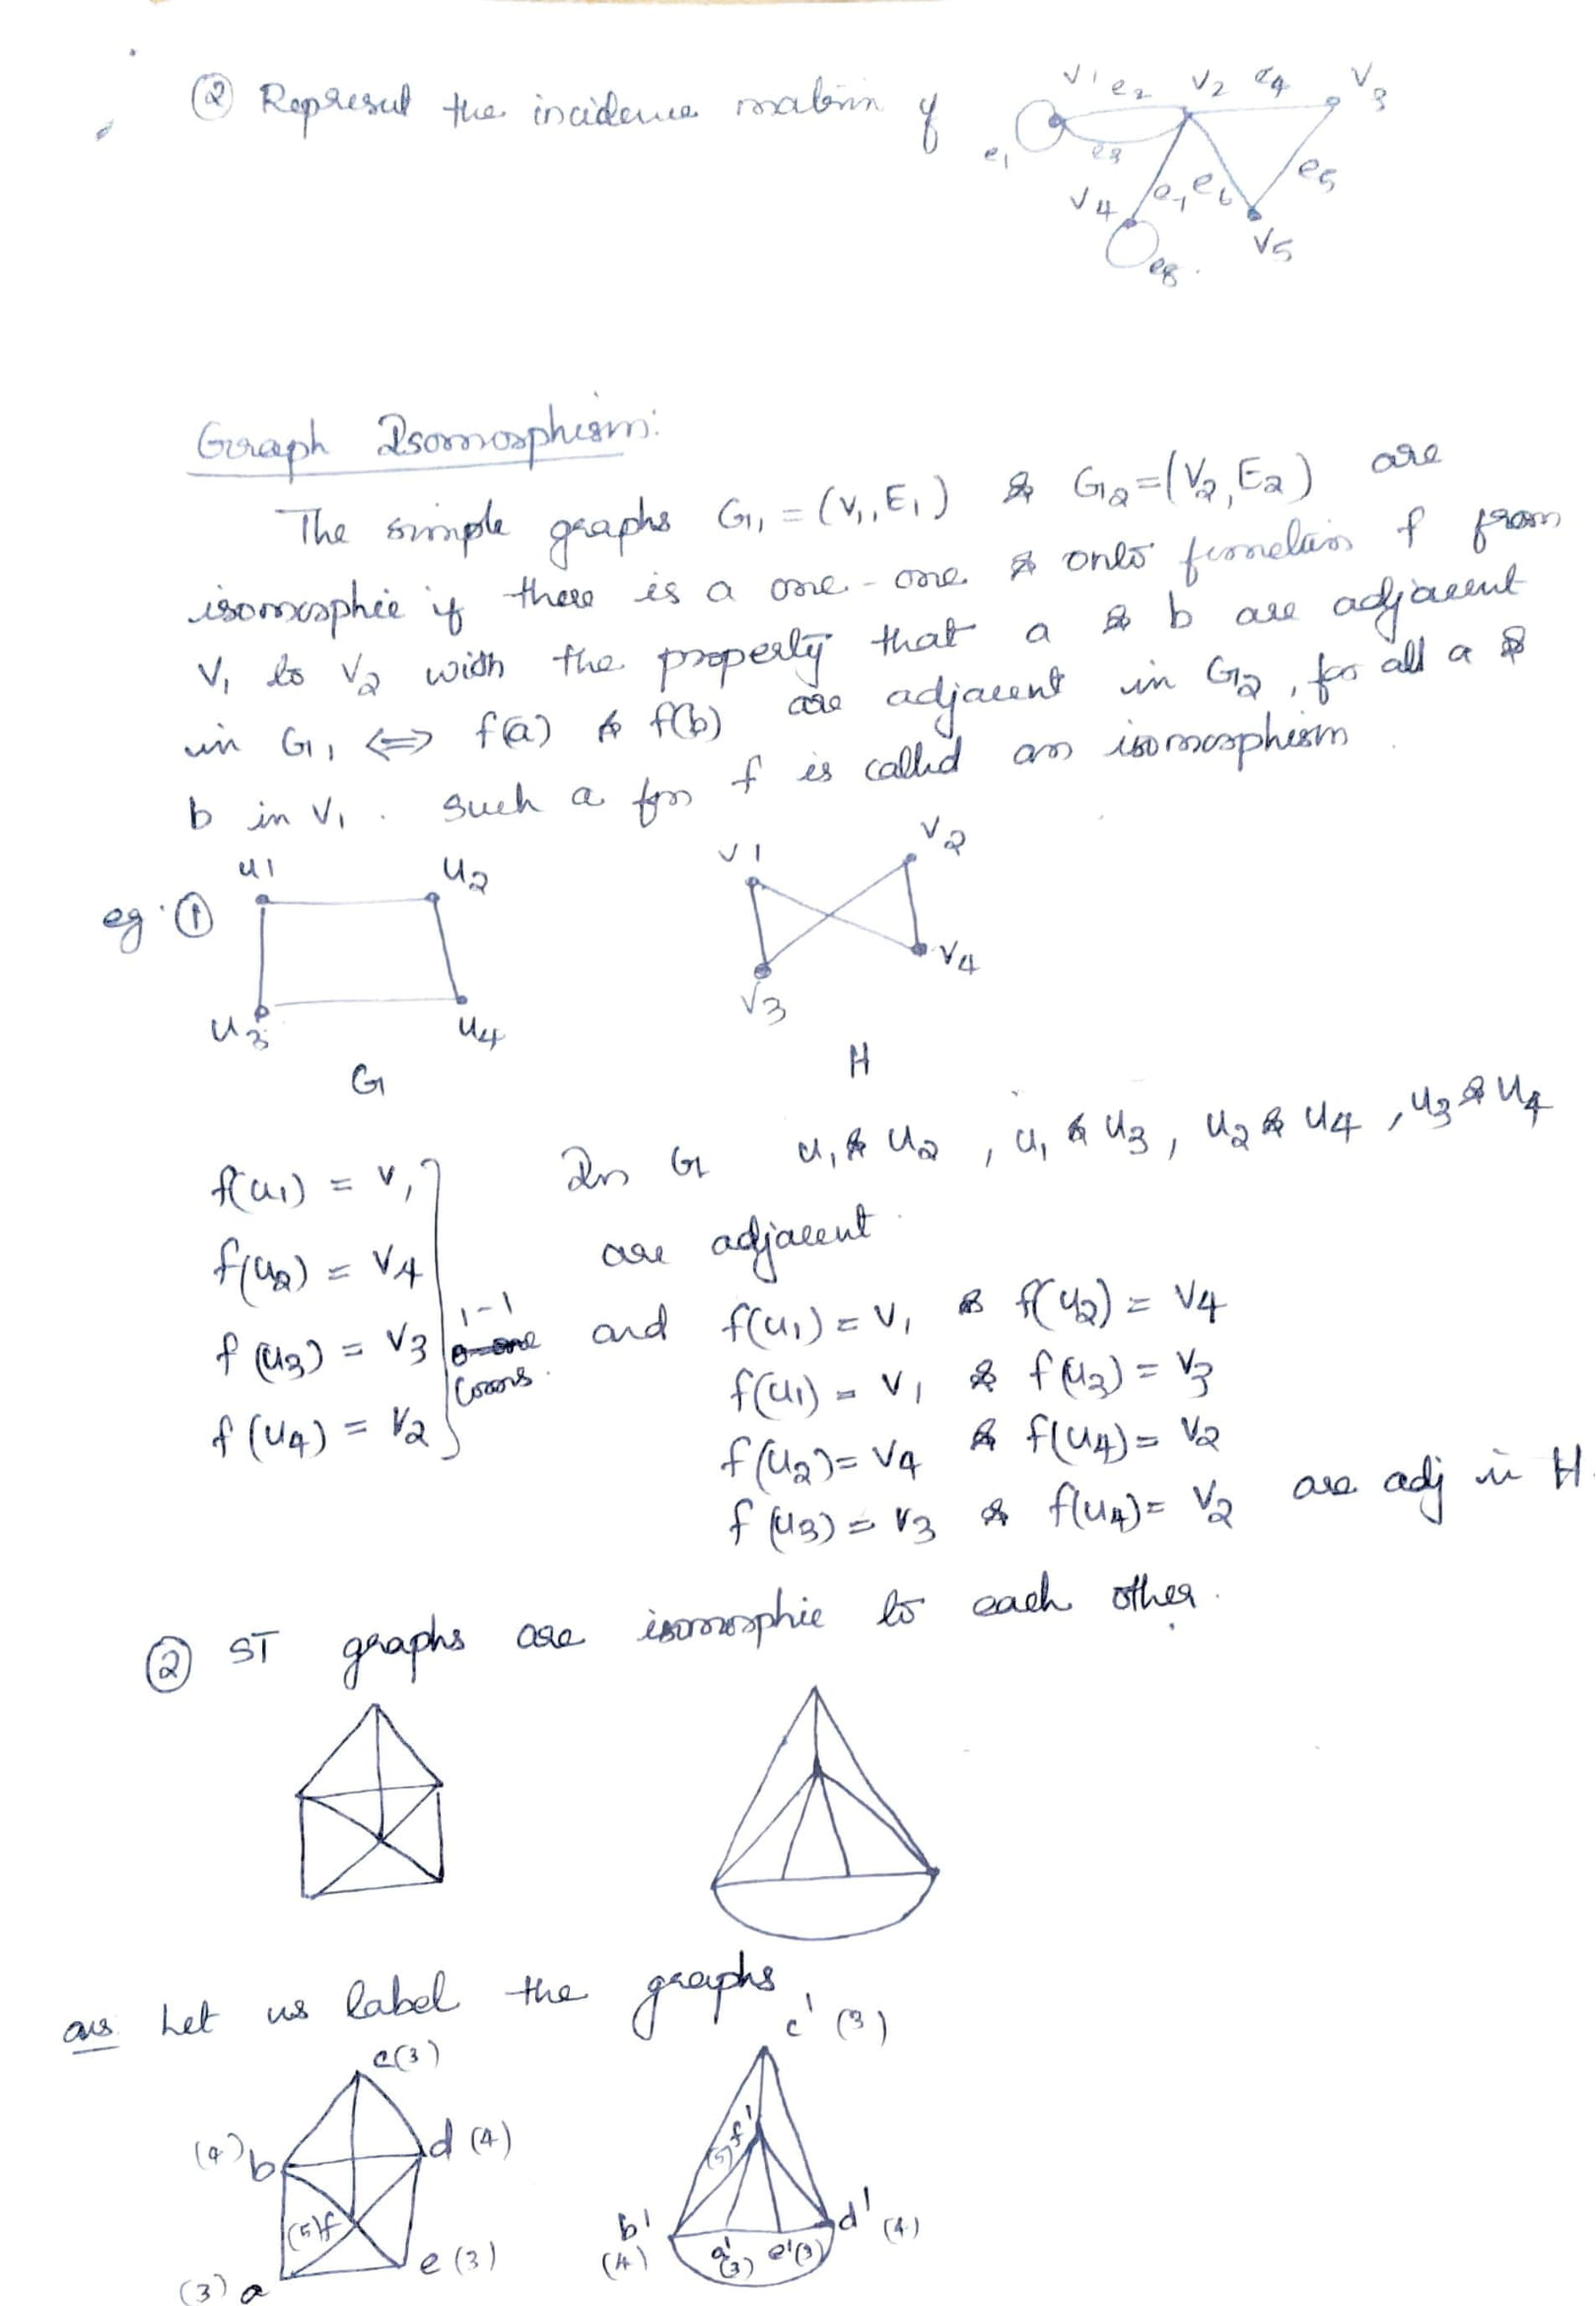 ② Represent the incidence matrix of
v1 e2 v2 e4 v3
e1 e3 e5
v4 e7 e6
e8 v5
Graph Isomorphism:
The simple graphs G1 = (V1, E1) & G2 = (V2, E2) are
isomorphic if there is a one-one & onto function f from
V1 to V2 with the property that a & b are adjacent
in G1 ⟺ f(a) & f(b) are adjacent in G2, for all a &
b in V1. Such a fn f is called an isomorphism
eg: ① u1 u2 v1 v2
u3 u4 v3 v4
G H
f(u1) = v1 In G u1 & u2, u1 & u3, u2 & u4, u3 & u4
f(u2) = v4 are adjacent.
f(u3) = v3 1-1 and f(u1) = v1 & f(u2) = v4
corres. f(u1) = v1 & f(u3) = v3
f(u4) = v2 f(u2) = v4 & f(u4) = v2
f(u3) = v3 & f(u4) = v2 are adj in H.
② ST graphs are isomorphic to each other.
ans Let us label the graphs
c(3) c' (3)
(4) b d (4) (5) f'
(5) f b' (4) d' (4)
(3) a e (3) a' (3) e' (3)